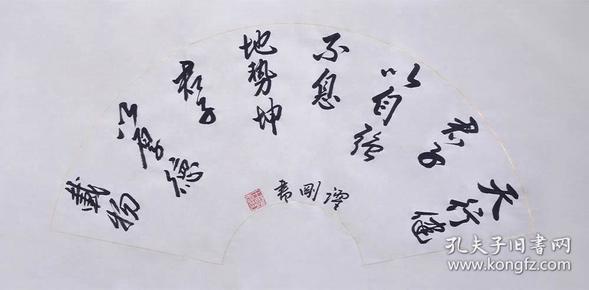 天行健
君子
以自強
不息
地勢坤
君子
以厚德
載物
譚剛書
孔夫子旧书网
www.kongfz.com